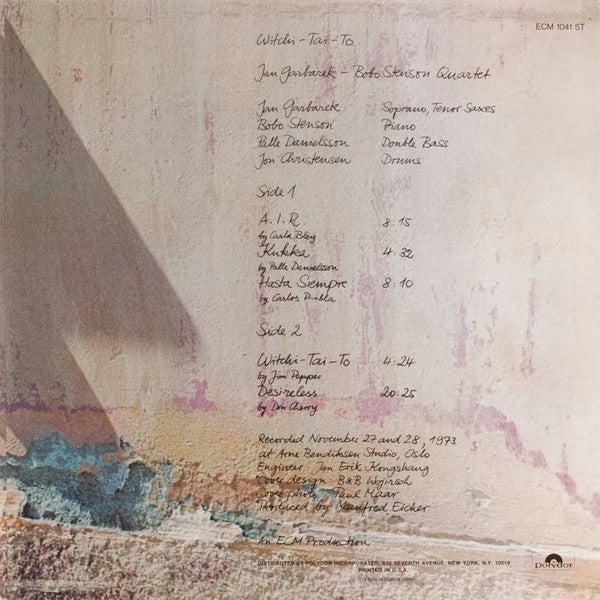 ECM 1041 ST
Witchi-Tai-To
Jan Garbarek - Bobo Stenson Quartet
Jan Garbarek Soprano, Tenor Saxes
Bobo Stenson Piano
Palle Danielsson Double Bass
Jon Christensen Drums
Side 1
A.I.R. 8:15
by Carla Bley
Kukka 4:32
by Palle Danielsson
Hasta Siempre 8:10
by Carlos Puebla
Side 2
Witchi-Tai-To 4:24
by Jim Pepper
Desireless 20:25
by Don Cherry
Recorded November 27 and 28, 1973
at Arne Bendiksen Studio, Oslo
Engineer: Jan Erik Kongshaug
Cover design: B&B Wojirsch
Cover photo: Paul Maar
Produced by Manfred Eicher
An ECM Production
DISTRIBUTED BY POLYDOR INCORPORATED, 810 SEVENTH AVENUE, NEW YORK, N.Y. 10019
PRINTED IN U.S.A.
polydor